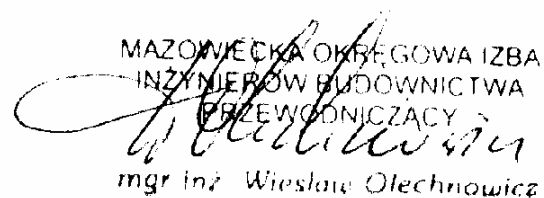 MAZOWIECKA OKRĘGOWA IZBA
INŻYNIERÓW BUDOWNICTWA
PRZEWODNICZĄCY
mgr inż. Wiesław Olechnowicz